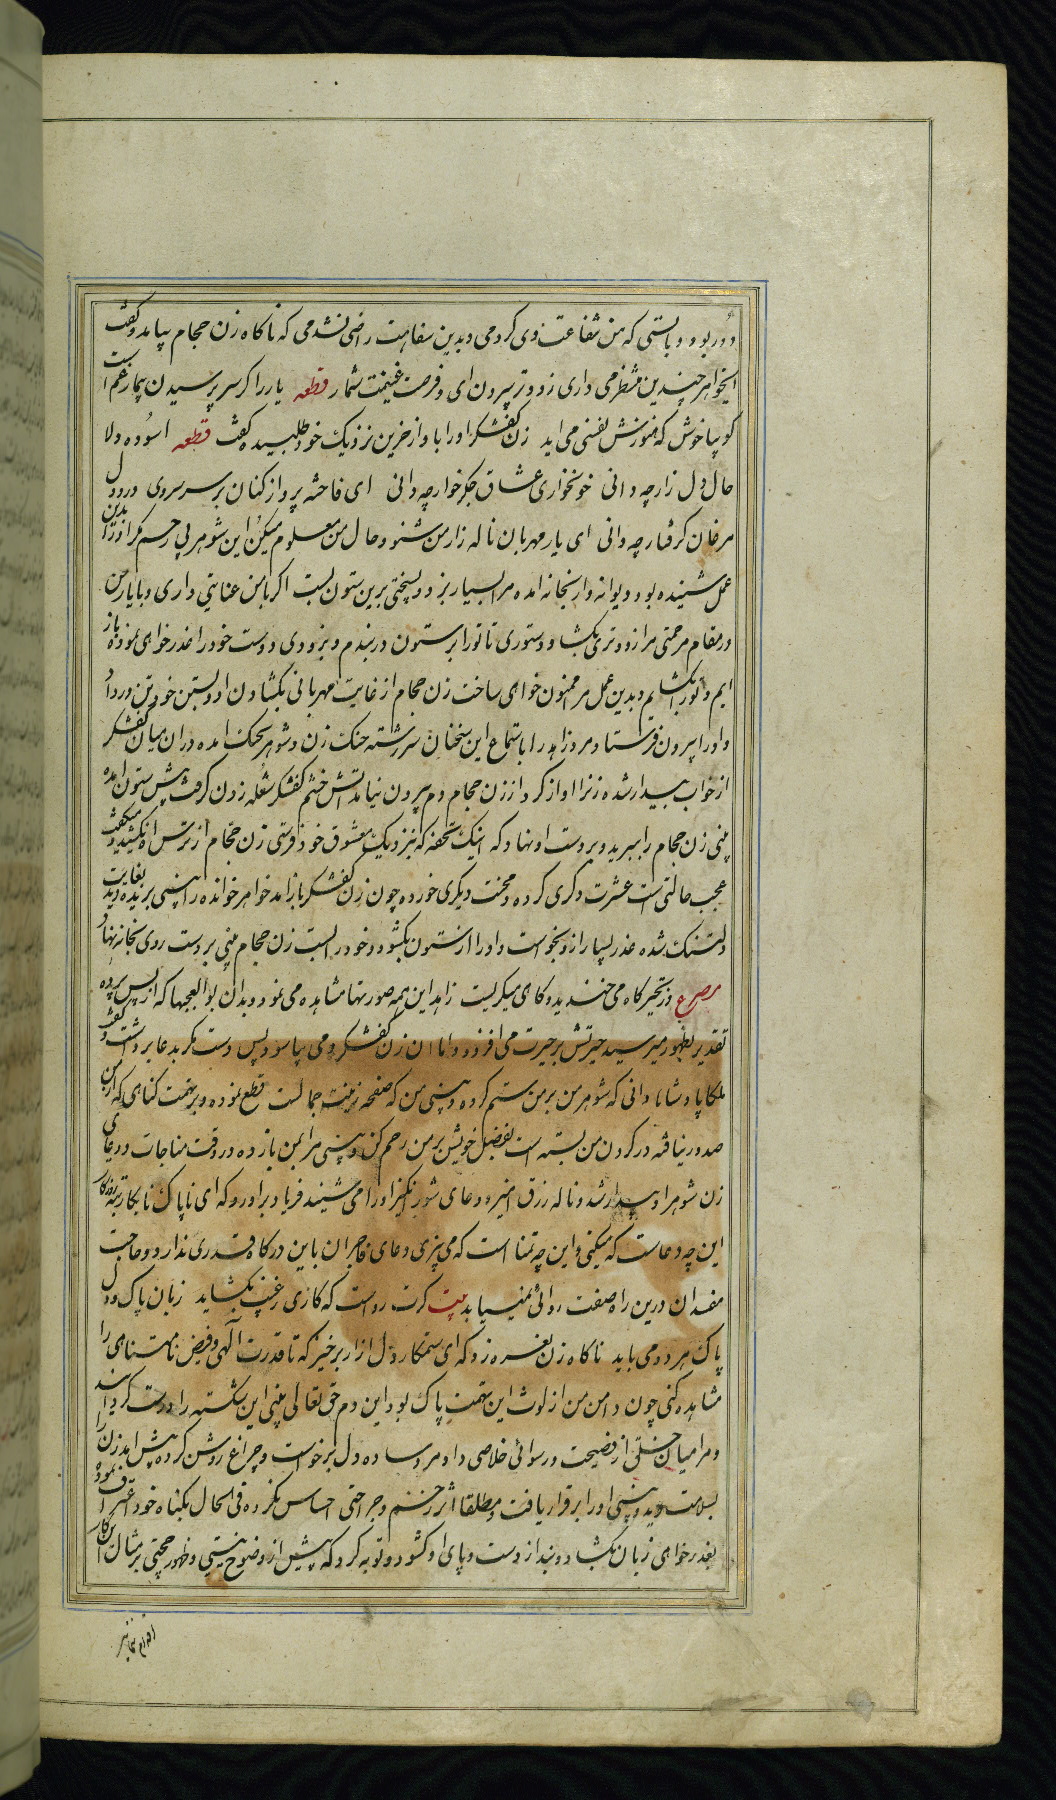 دور بود و بایستی که من شفاعت وی کردمی و بدین سفاهت راضی نشدمی که ناکاه زن حجام بیامد و کفت
ایخواهر چندین منتظر می داری زود تر بیرون ای و فرصت غنیمت شمار قطعه یار را کر سر پرسیدن بیمار غم است
کو بیا خوش که هنوزش نفسی می اید زن کفشکر او را باواز حزین نزدیک خود طلبیده کفت قطعه اسوده دلا
حال دل زار چه دانی خونخواری عشاق جکرخوار چه دانی ای فاخته پرواز کنان بر سر سروی درد دل
مرغان کرفتار چه دانی ای یار مهربان ناله زار من شنو و حال من معلوم میکن این شوهر بی رحم مکر او ترا بدین
عمل شنیده بود و دیوانه وار بخانه امده مرا بسیار بزد و بسختی برین ستون بست اکر با من عنایتی داری و با یار من
در مقام مرحمتی مرا زودتری بکشا و دستوری تا تو را بر ستون در بندم و بزودی دوست خود را عذرخواهی نموده باز
ایم و تو را بکشایم و بدین عمل مر ممنون خواهی ساخت زن حجام از غایت مهربانی بکشادن او و بستن خود تن درداد
و او را بیرون فرستاد مرد زاهد را باستماع این سخنان سررشته جنک زن و شوهر بچنک امده در ان میان کفشکر
از خواب بیدار شده زنرا اواز کرد از زن حجام دم بیرون نیامد اتش خشم کفشکر شعله زدن کرفت پیش ستون امده
بینی زن حجام را ببرید و بر دست او نهاد که اینک تحفه که بنزدیک معشوق خود فرستی زن حجام از ترس اه نکشید و میکفت
عجب حالتی است عشرت دکری کرده و محنت دیکری خورده چون زن کفشکر باز امد خواهر خوانده را بینی بریده دید بغایت
دلتنک شده عذر بسیار ازو بخواست و او را از ستون بکشود و خود را بست زن حجام بینی بر دست روی بخانه نهاد
مصرع در تحیر کاه می خندید و کاهی میکریست زاهد این همه صورتها مشاهده می نمود و بدان بوالعجبها که از پس پرده
تقدیر بظهور میرسید حیرتش بر حیرت می افزود و اما ان زن کفشکر دمی بیاسود پس دست مکر بدعا برداشت و کفت
ملکا پادشاها دانی که شوهر من بر من ستم کرده و بینی من که صفحه زینت جمالست قطع نموده و بتهمت کناهی که از من
صدور نیافته در کردن من بسته است بفضل خویش بر من رحم کن و بینی مرا بمن باز ده در وقت مناجات و دعای
زن شوهر او بیدار شد و ناله زرق امیز و دعای شور انکیز او را می شنید فریاد براورد که ای ناپاک نابکار تبه روزکار
این چه دعاست که میکنی و این چه تمنا است که می بزی دعای فاجران باین درکاه قدری ندارد و حاجت
مفسدان درین راه صفت روائی نمی یابد بیت کرت رواست که کاری ز غیب بکشاید زبان پاک و دل
پاک هر دو می باید ناکاه زن نعره زد که ای ستمکار دل ازار برخیز که تا قدرت آلهی و فیض نامتناهی را
مشاهده کنی چون دامن من از لوث این تهمت پاک بود این دم حق تعالی بینی این شکسته را درست کردانید
و مرا میان خلق از فضیحت و رسوائی خلاصی داد مرد ساده دل برخواست و چراغ روشن کرده پیش امد زن را
بسلامت دید و بینی او را برقرار یافت و مطلقا اثر زخم و جراحتی احساس نکرد فی الحال بکناه خود اعتراف نموده
بعذر خواهی زبان بکشاد و بند از دست و پای او کشود و توبه کرد که پیش از وضوح بینتی و ظهور حجتی بر مثال این کار
اقدام نماید